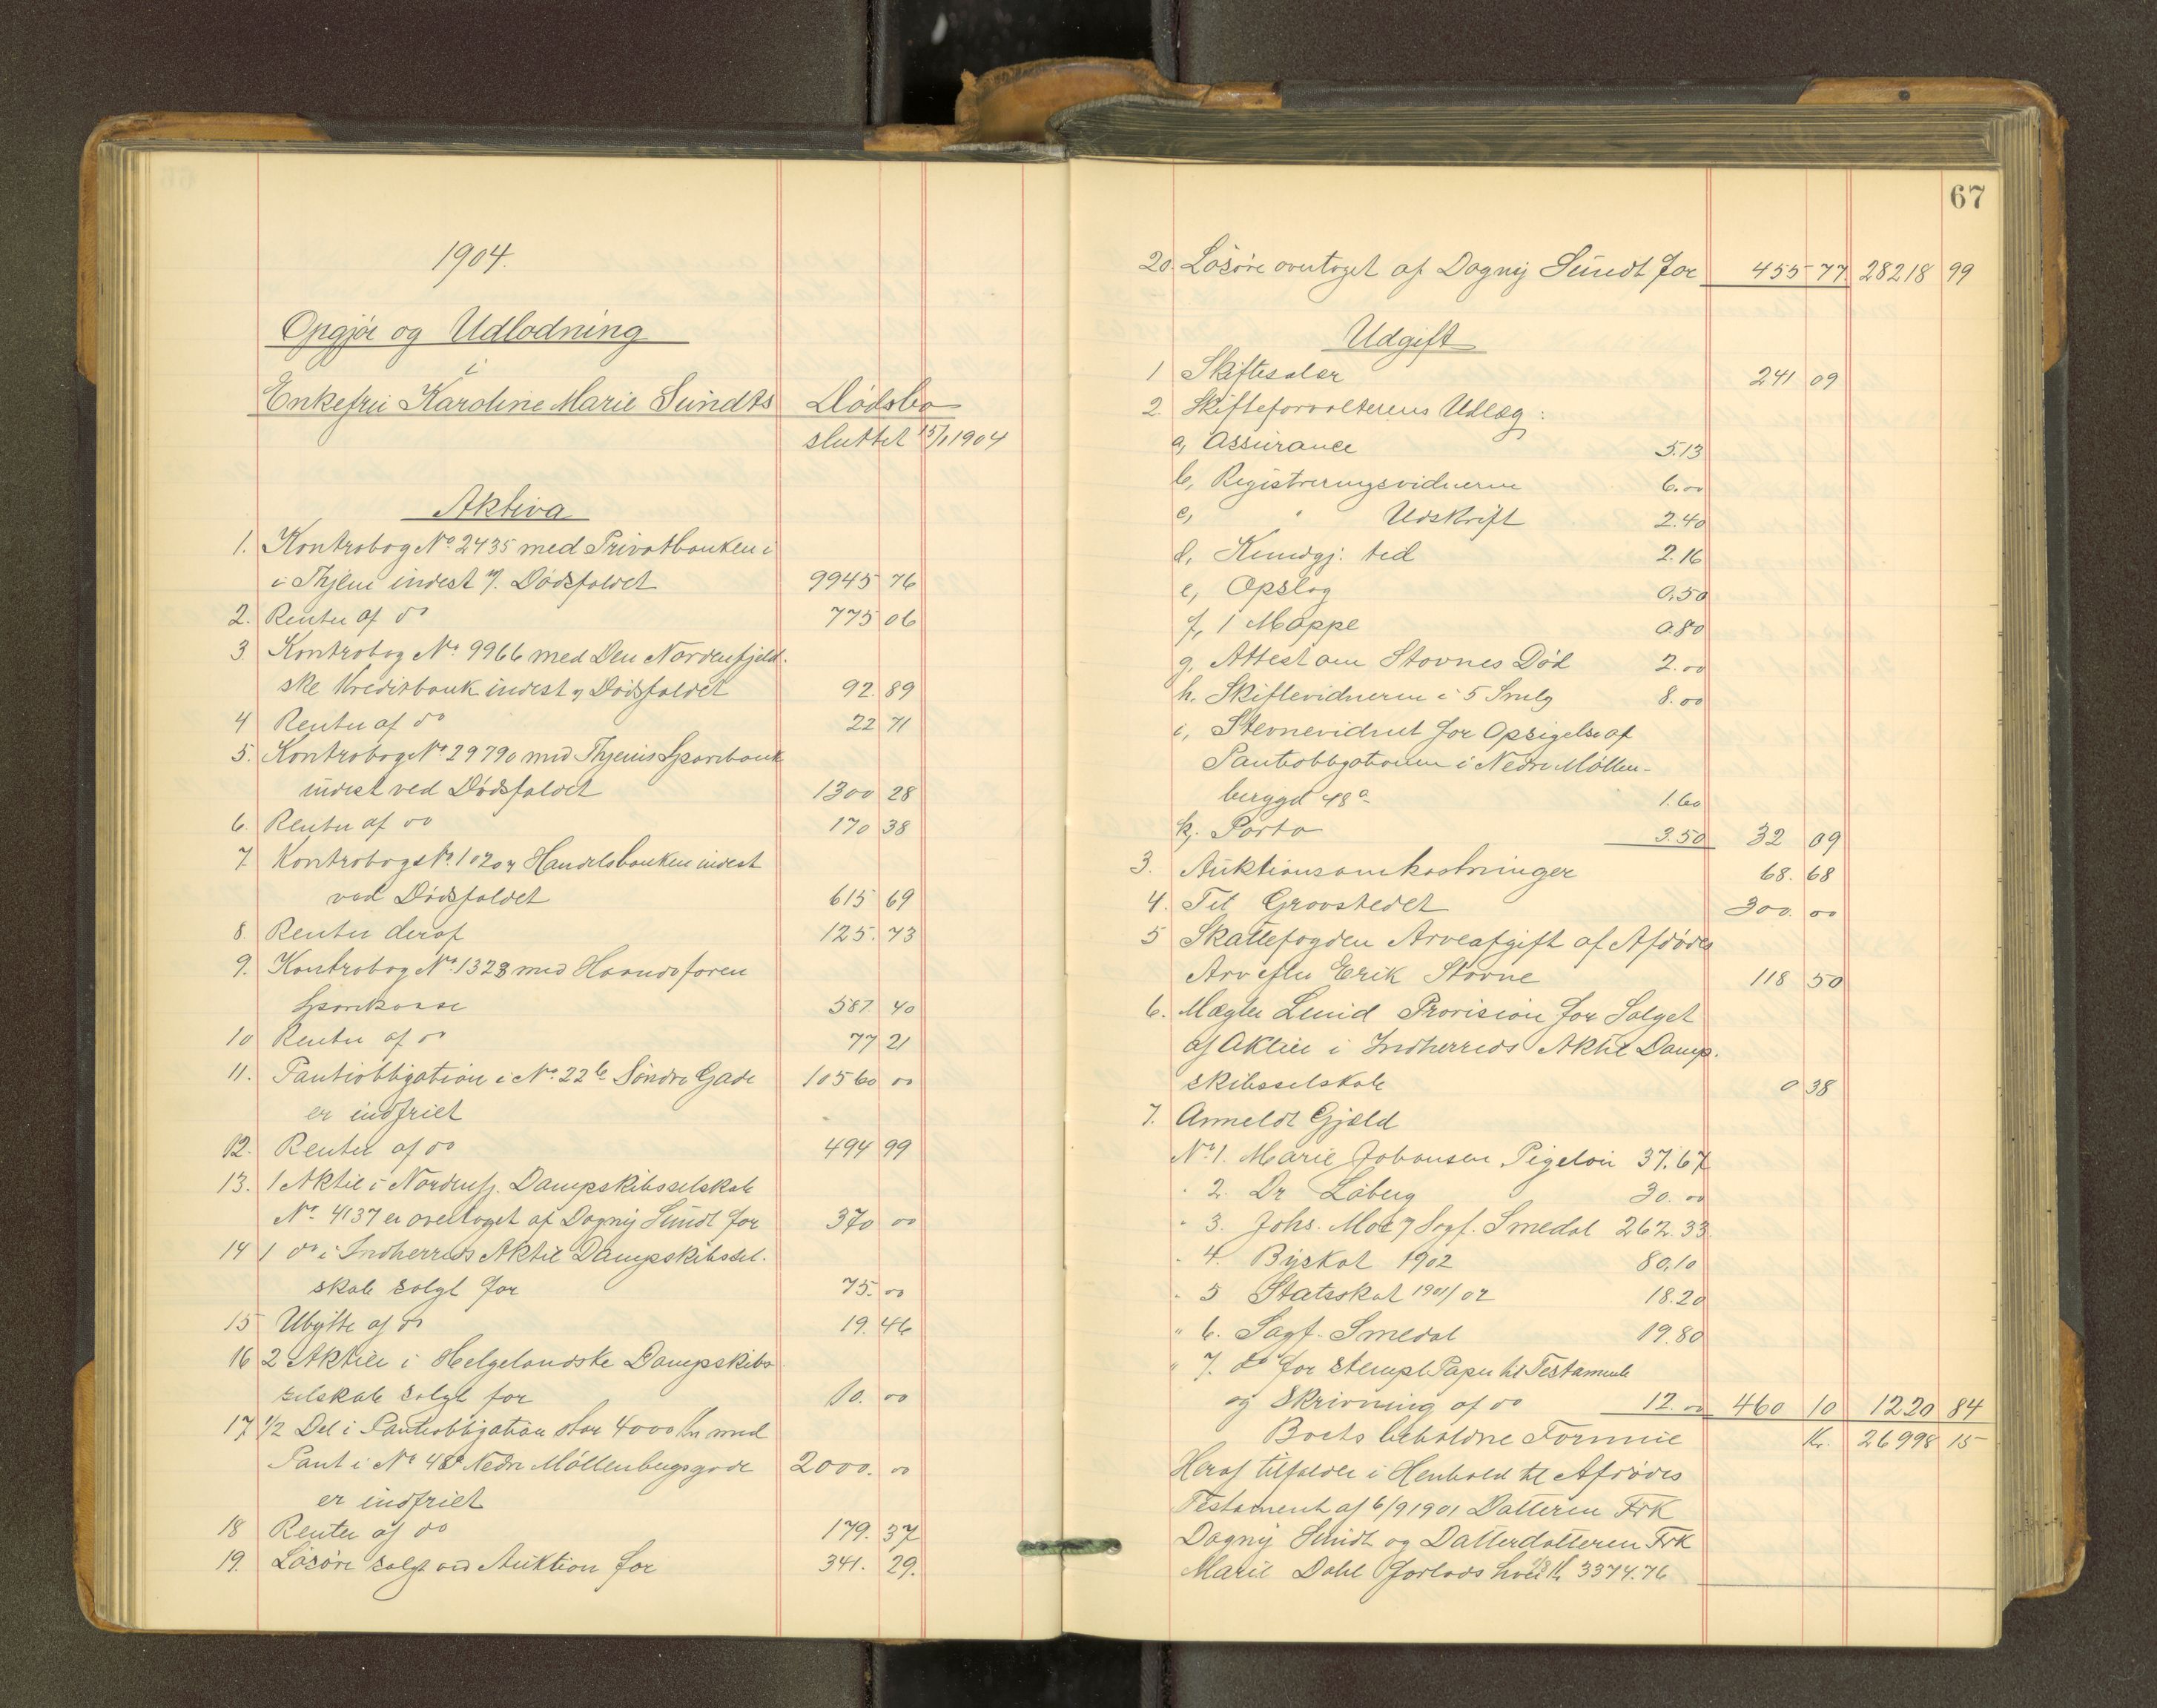 1904.
Opgjør og Udlodning
i
Enkefru Karoline Marie Sundts Dødsbo
sluttet 15/1 1904
Aktiva
1. Kontrabog No 2435 med Privatbanken i
i Thjem indest v. Dødsfaldet 9945 76
2. Renter af do 775 06
3 Kontrabog No 9966 med Den Nordenfjeld-
ske Kreditbank indest v Dødsfaldet 92.89
4 Renter af do 22 71
5. Kontrabog No 29790 med Thjems Sparebank
indest ved Dødsfaldet 1300 28
6. Renter af do 170 38
7. Kontrabog No. 10204 Handelsbanken indest
ved Dødsfaldet 615 69
8. Renter deraf 125.73
9. Kontrabog No. 1328 med Haandsforen
Sparekasse 587.40
10 Renter af do 77 21
11. Pantiobligation i No. 22b Søndre Gade 10560 00
er indfriet
12. Renter af do 494 99
13. 1 Aktie i Nordenfj. Dampskibsselskab
No. 4137 er overtaget af Dagny Sundt for 370 00
14 1 do i Indherreds Aktie Dampskibssel-
skab solgt for 75. 00
15 Udbytte af do 19.46
16 2 Aktier i Helgelandske Dampskibs
selskab solgt for 10. 00
17 1/2 Del i Pantiobligation stor 4000 Kr med
Pant i No 48a Nedre Møllenbergsgade 2000. 00
er indfriet
18 Renter af do 179. 37
19. Løsøre solgt ved Auktion for 341. 29.
67
20. Løsøre overtaget af Dagny Sundt for 455 77. 28218 99
Udgift
1 Skiftesalær 241 09
2. Skifteforvalterens Udlæg:
a, Assurance 5.13
b, Registreringsvidnerne 6.00
c, " Udskrift 2.40
d, Kundgj. ted 2.16
e, Opslag 0.50
f, 1 Mappe 0.80
g, Attest om Stavnes Død 2.00
h. Skiftevidnerne i 5 Smlg 8.00
i, Stevnevidnet for Opsigelse af
Pantiobligationen i Nedre Møllen-
berggd 48a 1.60
k, Porto 3.50 32 09
3. Auktionsomkostninger 68.68
4. Til Gravstedet 300. 00
5 Skattefogden Arveafgift af Afdødes
Arv efter Erik Stavne 118 50
6. Mægler Lund Provision for Salget
af Aktier i Indherreds Aktie Damp-
skibsselskab 0 38
7. Anmeldt Gjæld
No 1. Marie Johansen Pigeløn 37.67
" 2. Dr Løberg 30.00
" 3. Johs. Moe v Sagf. Smedal 262.33
" 4. Byskat 1902 80.10
" 5 Statsskat 1901/02 18.20
" 6. Sagf. Smedal 19.80
" 7. do for stempl. Papir til Testamente
og Skrivning af do 12.00 460 10 1220 84
Boets beholdne Formue Kr. 26998 15
Heraf tilfalder i Henhold til Afdødes
Testament af 6/9 1901 Datteren Frk
Dagny Sundt og Datterdatteren Frk
Marie Dahl forlods hver 1/8 Kr 3374.76